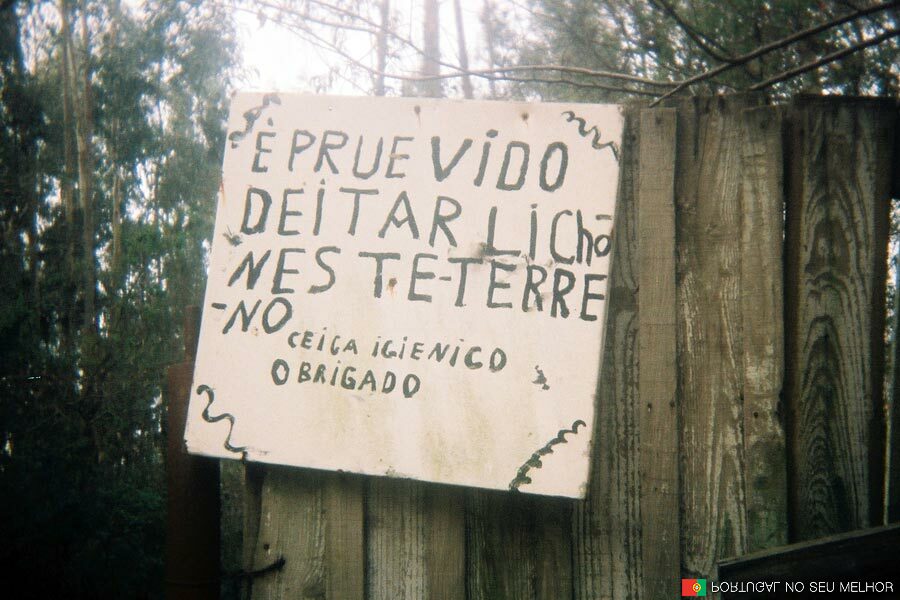 È PRUEVIDO
DEITAR LICHO
NESTE-TERRE
-NO
CEIGA IGIENICO
OBRIGADO
PORTUGAL NO SEU MELHOR